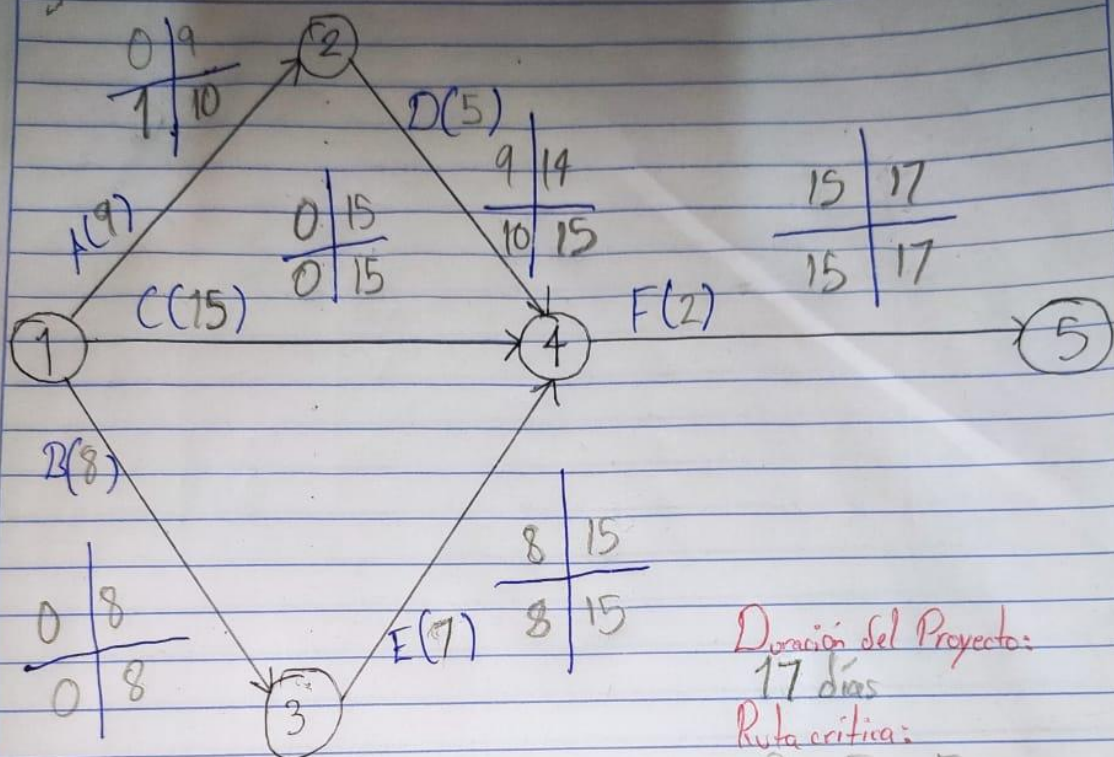 2
0 9
1 10
D(5)
9 14
10 15
15 17
15 17
A(9)
0 15
0 15
C(15)
F(2)
1
4
5
B(8)
8 15
8 15
0 8
0 8
E(7)
3
Duración del Proyecto:
17 días
Ruta crítica: